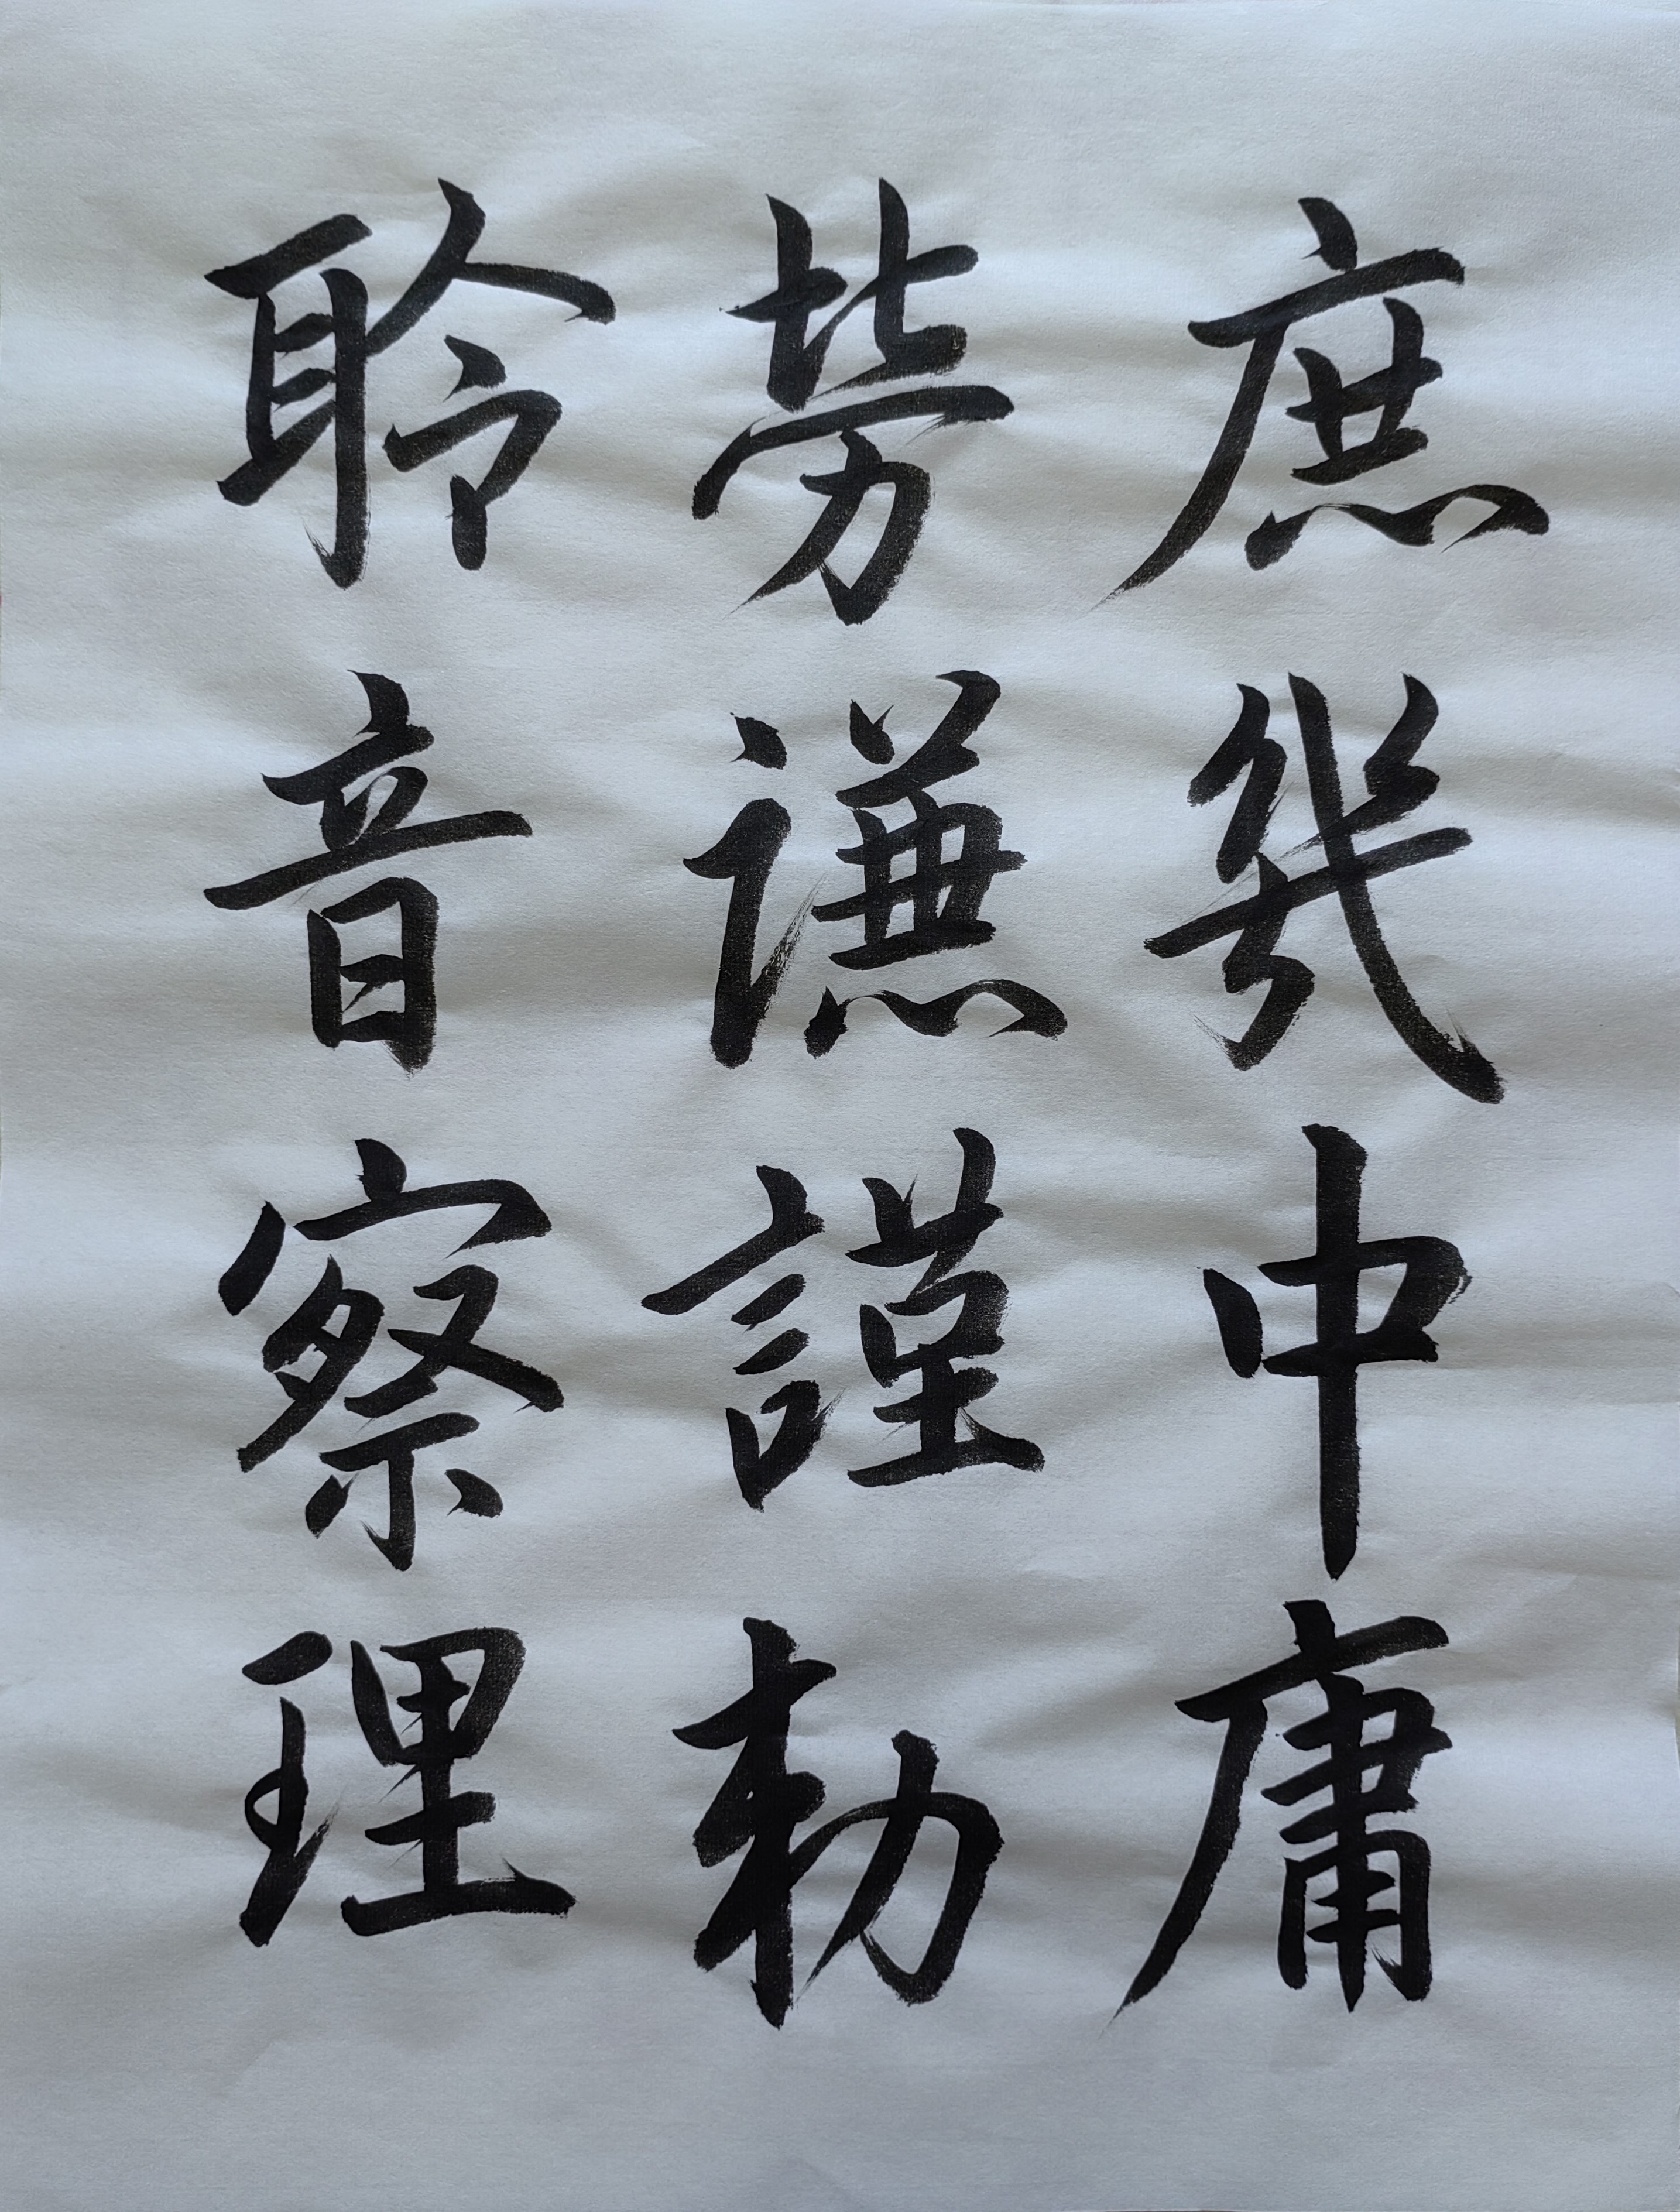 庶幾中庸
勞謙謹勅
聆音察理